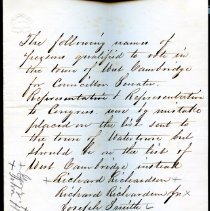 The following names of
persons qualified to vote in
the town of West Cambridge
for Councillor Senator
Representative & Representative
to Congress, was by mistake
placed on the list sent to
the town of Watertown, but
should be on the list of
West Cambridge instead
+ Richard Richardson
Richard Richardson Jr. +
Joseph Smith +